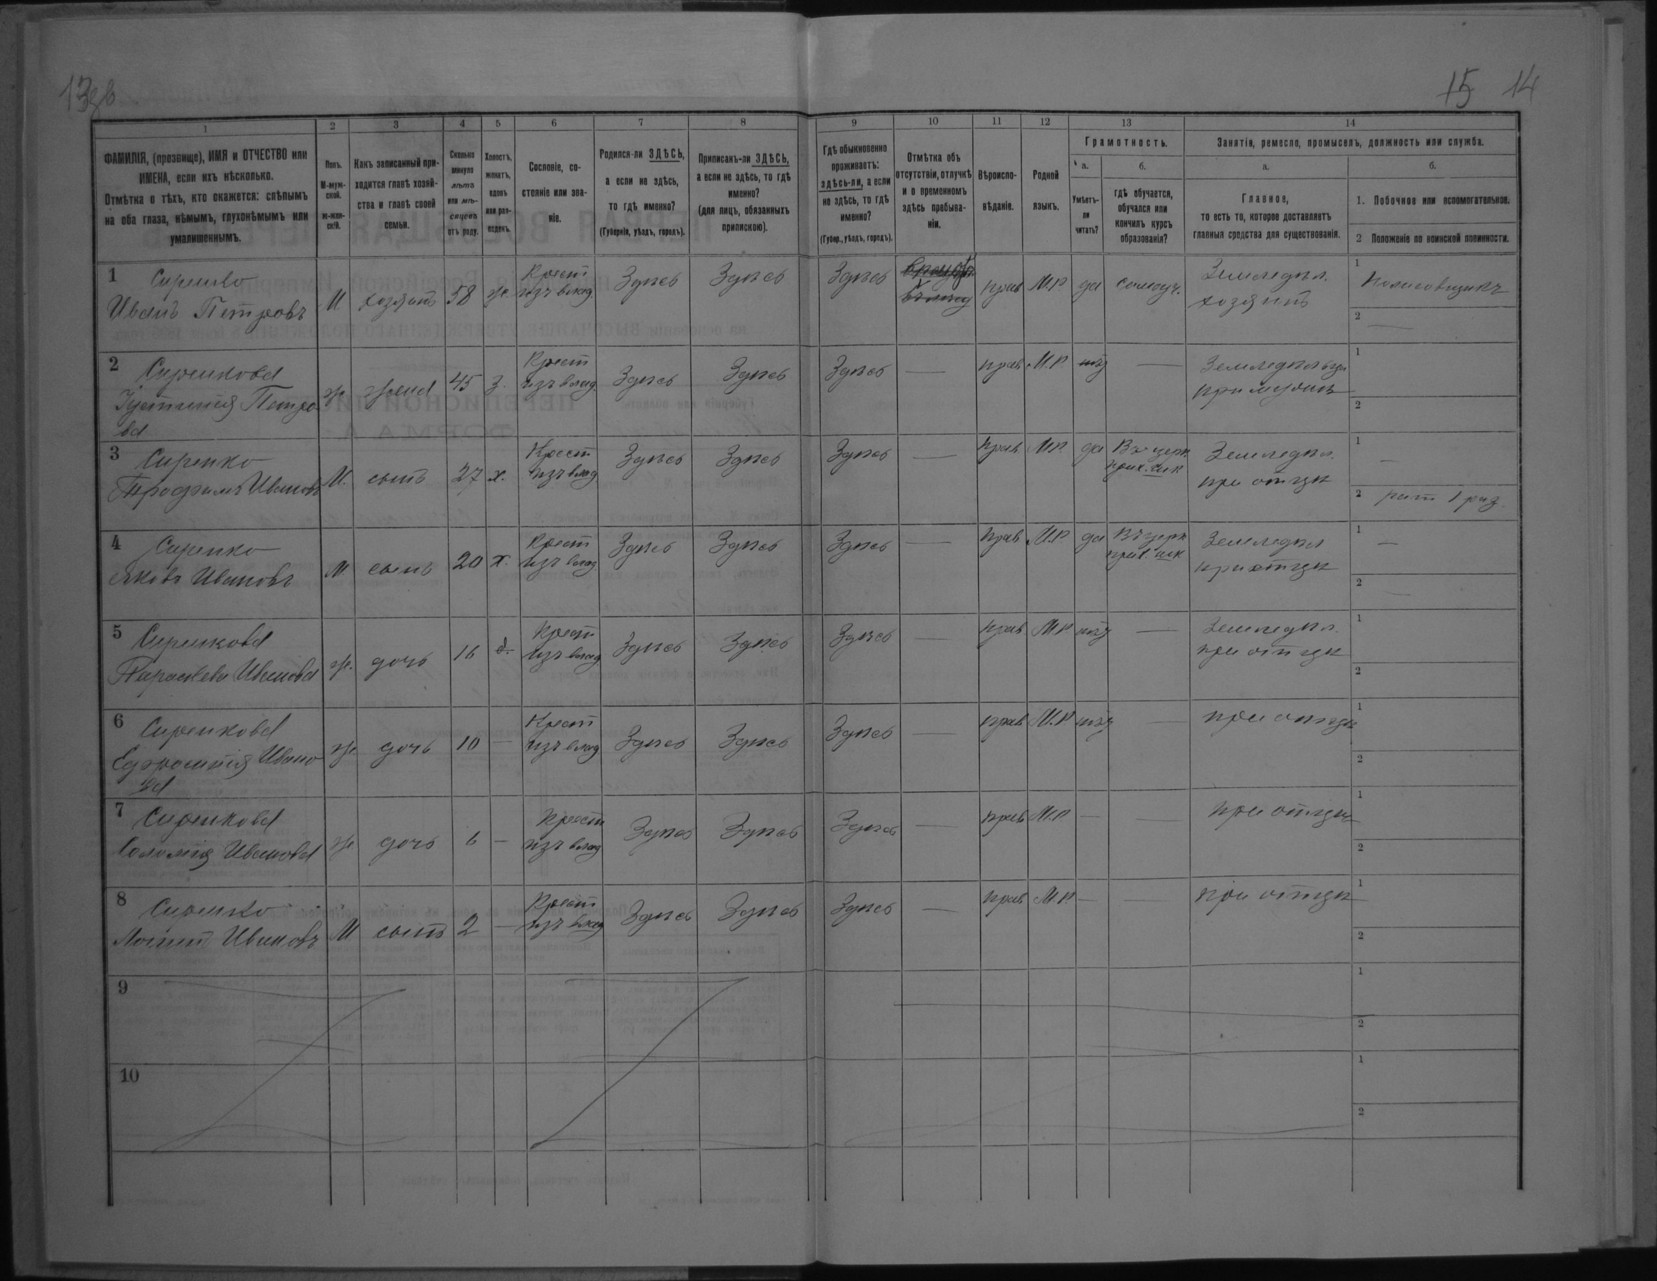 13об
15 14
1 2 3 4 5 6 7 8 9 10 11 12 13 14
ФАМИЛІЯ, (прозвище), ИМЯ и ОТЧЕСТВО или
ИМЕНА, если ихъ нѣсколько.
Отмѣтка о тѣхъ, кто окажется: слѣпымъ
на оба глаза, нѣмымъ, глухонѣмымъ или
умалишеннымъ.
Полъ.
М-муж-
ской.
ж-жен-
скій.
Какъ записанный при-
ходится главѣ хозяй-
ства и главѣ своей
семьи.
Сколько
минуло
лѣтъ
или мѣ-
сяцевъ
отъ роду.
Холостъ,
женатъ,
вдовъ
или раз-
веденъ.
Сословіе, со-
стояніе или зва-
ніе.
Родился-ли ЗДѢСЬ,
а если не здѣсь,
то гдѣ именно?
(Губернія, уѣздъ, городъ).
Приписанъ-ли ЗДѢСЬ,
а если не здѣсь, то гдѣ
именно?
(для лицъ, обязанныхъ
припискою).
Гдѣ обыкновенно
проживаетъ:
здѣсь-ли, а если
не здѣсь, то гдѣ
именно?
(Губер., уѣздъ, городъ).
Отмѣтка объ
отсутствіи, отлучкѣ
и о временномъ
здѣсь пребыва-
ніи.
Вѣроиспо-
вѣданіе.
Родной
языкъ.
Грамотность.
а.
Умѣетъ-
ли
читать?
б.
гдѣ обучается,
обучался или
кончилъ курсъ
образованія?
Занятіе, ремесло, промыселъ, должность или служба.
а.
Главное,
то есть то, которое доставляетъ
главныя средства для существованія.
б.
1. Побочное или вспомогательное.
2 Положеніе по воинской повинности.
1 Сиренко
Иванъ Петровъ М. хозяинъ 58 ж. Крест изъ влад Здѣсь Здѣсь Здѣсь прав М.Р да самоуч. Земледѣл. хозяинъ
1
2 —
2 Сиренкова
Устинія Петро
ва ж жена 45 з. Крест изъ влад Здѣсь Здѣсь Здѣсь — прав М.Р нѣт — Земледѣл при мужѣ
1
2
3 Сиренко
Трофимъ Ивановъ М. сынъ 27 х. Крест изъ влад Здѣсь Здѣсь Здѣсь — прав М.Р да Въ церк прих. шк Земледѣл. при отцѣ
1 —
2 рат 1 раз.
4 Сиренко
Яковъ Ивановъ М. сынъ 20 х. Крест изъ влад Здѣсь Здѣсь Здѣсь — прав М.Р да Въ церк прих шк Земледѣл при отцѣ
1 —
2 —
5 Сиренкова
Параскева Иванова ж. дочь 16 д. Крест изъ влад Здѣсь Здѣсь Здѣсь — прав М.Р нѣт — Земледѣл. при отцѣ
1
2
6 Сиренкова
Ефросинія Ивано
ва ж. дочь 10 — Крест изъ влад Здѣсь Здѣсь Здѣсь — прав М.Р нѣт — при отцѣ
1
2
7 Сиренкова
Соломія Иванова ж дочь 6 — Крест изъ влад Здѣсь Здѣсь Здѣсь — прав М.Р — — при отцѣ
1
2
8 Сиренко
Ивановъ М сынъ 2 — Крест изъ влад Здѣсь Здѣсь Здѣсь — прав М.Р — — при отцѣ
1
2
9
1
2
10
1
2